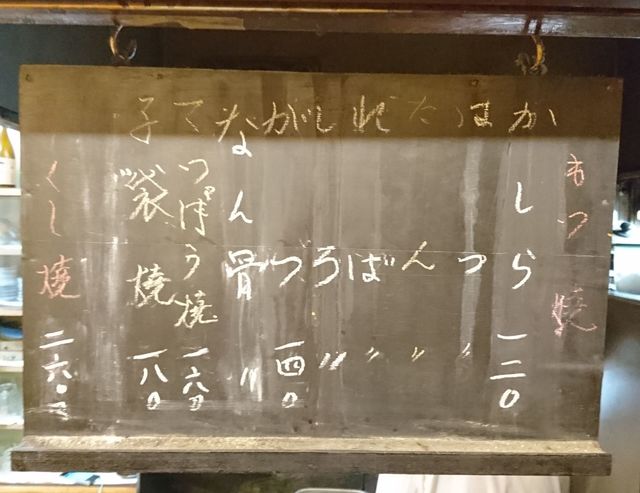 もつ焼
かしら 一二〇
はつ 〃
たん 〃
れば 〃
しろ 〃
がつ 一四〇
なん骨 〃
てっぽう焼 一六〇
子袋焼 一八〇
くし焼 二六〇